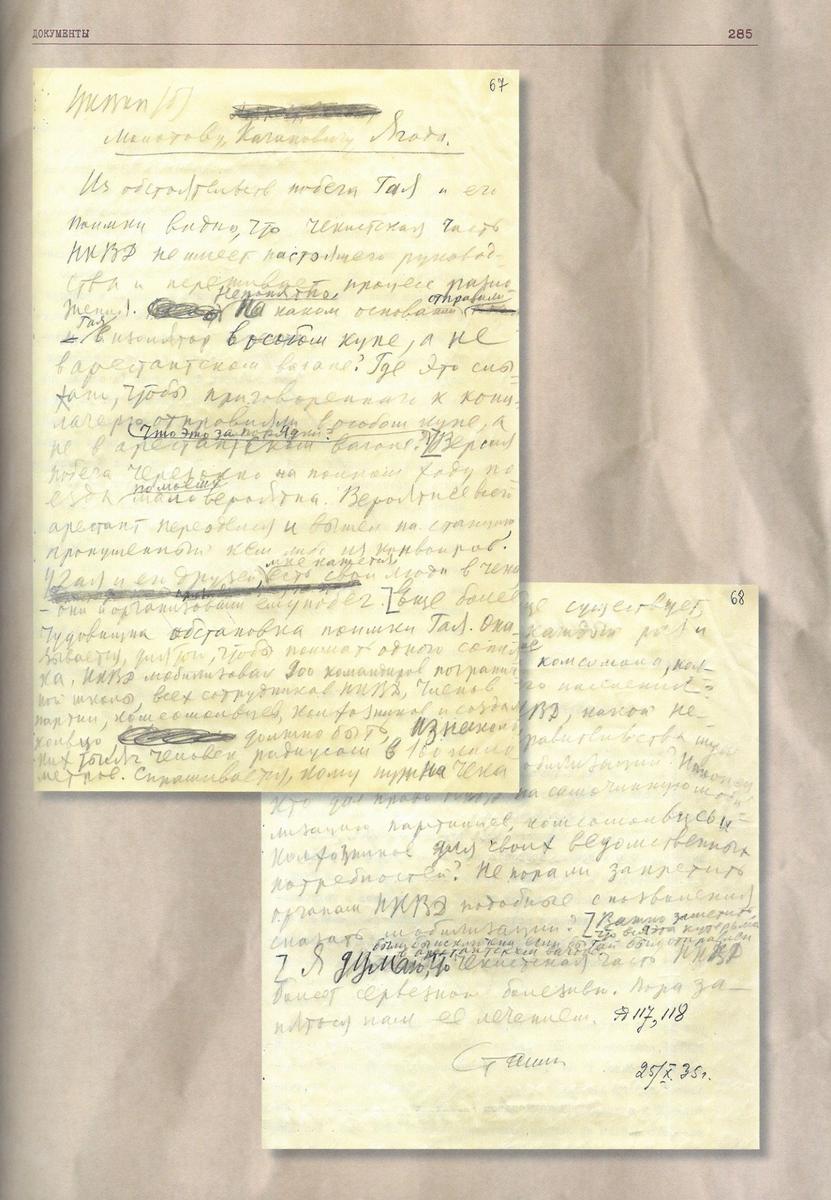 ДОКУМЕНТЫ
285
67
ЦКВКП(б)
Молотову, Кагановичу Ягода.
Из обстоятельств побега Гая и его
поимки видно, что чекистская часть
НКВД не имеет настоящего руковод-
ства и переживает процесс разло-
жения. Непонятно, на каком основании отправили
Гая в изолятор в особом купе, а не
в арестантском вагоне? Где это слы-
хано, чтобы приговоренного к конц-
лагерю отправляли в особом купе, а
не в арестантском вагоне? Что это за порядки? [Версия
побега через окно на полном ходу по-
езда по-моему маловероятна. Вероятнее всего
арестант переоделся и вышел на станции
пропущенный кем либо из конвоиров.
У Гая и его друзей, мне кажется, есть свои люди в чека
– они и организовали ему побег. [Еще более
чудовищна обстановка поимки Гая. Ока-
зывается, для того, чтобы поймать одного
ка, НКВД мобилизовал 900 командиров погранич-
ной школы, всех сотрудников НКВД, членов
партии, комсомольцев, колхозников и создал
кольцо должно быть из нескольких
тысяч человек радиусом в 100 кило-
метров. Спрашивается, кому нужна чека
68
ще существует,
каждый раз
комсомола, кол-
го населения?
КВД, какой не-
равительства
обилизации? Наконец
кто дал право НКВД на самочинную моби-
лизацию партийцев, комсомольцев и
колхозников для своих ведомственных
потребностей? Не пора ли запретить
органам НКВД подобные с позволения
сказать мобилизации? [Важно заметить,
что вся эта кутерьма
была бы исключена, если бы Гай был отправлен
в арестантском вагоне.
] Я думаю, что чекистская часть НКВД
болеет серьезной болезнью. Пора за-
няться нам ее лечением. Я 117, 118
Сталин
25/X.35г.